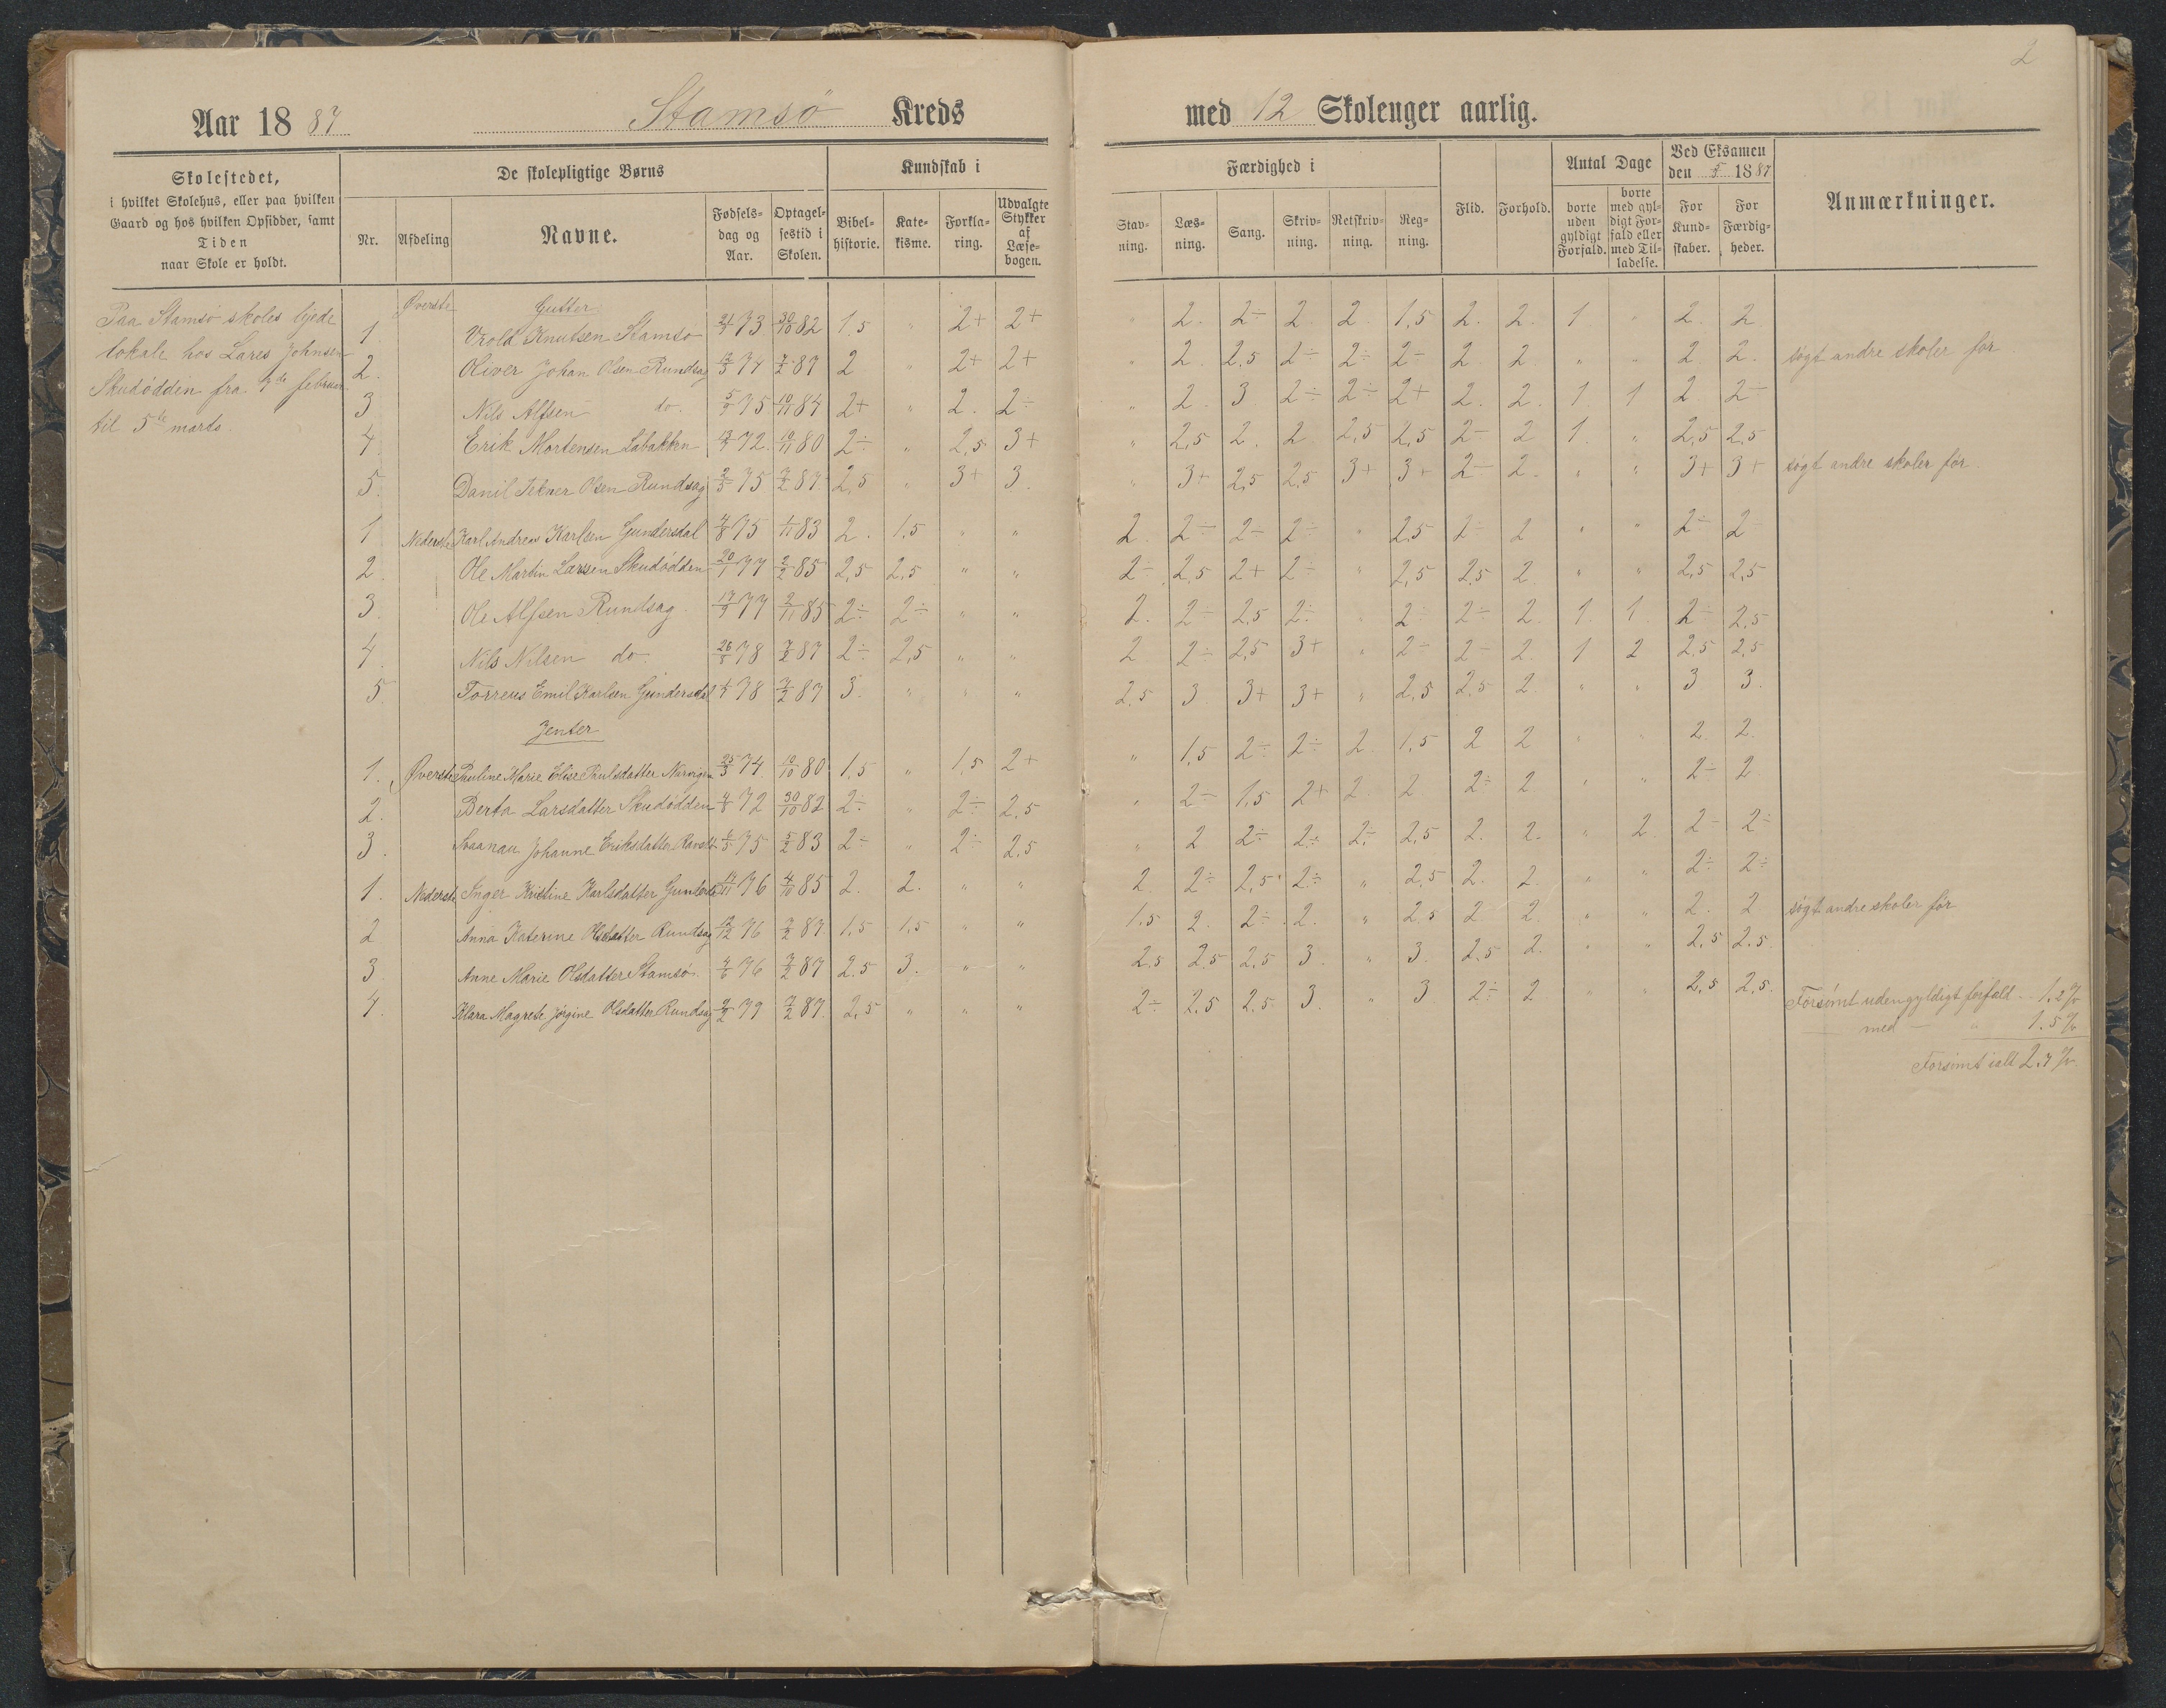 2
Aar 1887 Stamsø Kreds med 12 Skoleuger aarlig.
Skolestedet,
i hvilket Skolehus, eller paa hvilken
Gaard og hos hvilken Opsidder, samt
Tiden
naar Skole er holdt.
De skolepligtige Børns
Nr. Afdeling Navne. Fødselsdag og Aar. Optagelsestid i Skolen.
Kundskab i
Bibelhistorie. Katekisme. Forklaring. Udvalgte Stykker af Læsebogen.
Færdighed i
Stavning. Læsning. Sang. Skrivning. Retskrivning. Regning.
Flid. Forhold.
Antal Dage
borte uden gyldigt Forfald. borte med gyldigt Forfald eller med Tilladelse.
Ved Eksamen
den 5/3 1887
For Kundskaber. For Færdigheder.
Anmærkninger.
Paa Stamsø skoles lejede
lokale hos Lares Johnsen
Skudødden fra 7de februar
til 5te marts.
Øverste Gutter
1. Vrold Knutsen Stamsø 73 30/10 82 1.5 " 2+ 2+ " 2. 2÷ 2. 2. 1,5 2. 2. 1 " 2. 2
2. Oliver Johan Olsen Rundsag 74 7/2 87 2 " 2+ 2+ " 2. 2,5 2÷ 2÷ 2÷ 2 2. " " 2. 2. søgt andre skoler før
3 Nils Alfsen do. 75 10/11 84 2+ " 2. 2÷ " 2. 3. 2÷ 2÷ 2+ 2. 2. 1. 1 2 2÷
4 Erik Mortensen Labakken 72. 10/11 80 2÷ " 2,5 3+ " 2,5 2. 2. 2,5 2,5 2÷ 2 1. " 2,5 2,5
5. Danil Olsen Rundsag 75 7/2 87. 2,5 " 3+ 3. " 3+ 2,5 2,5 3+ 3+ 2÷ 2. " " 3+ 3+ søgt andre skoler før.
1 Nederste Karl Andreas Karlsen Gundersdal 4/8 75 1/11 83 2. 1.5 " " 2. 2÷ 2÷ 2÷ " 2.5 2÷ 2 " " 2÷ 2
2. Ole Martin Larsen Skudødden 20/1 77 2/2 85 2,5 2,5 " " 2÷ 2,5 2+ 2÷ " 2,5 2,5 2. " " 2,5 2,5
3. Ole Alfsen Rundsag 77 2/11 85 2÷ 2÷ " " 2. 2÷ 2,5 2÷ " 2÷ 2÷ 2. 1. 1. 2÷ 2,5
4. Nils Nilsen do. 78 7/2 87 2÷ 2,5 " " 2 2÷ 2,5 3+ " 2÷ 2÷ 2. 1 2 2,5 2,5
5. Emil Karlsen Gundersdal 78 7/2 87 3. " " " 2.5 3 3+ 3+ " 2,5 2,5 2. " " 3 3.
Jenter
1. Øverste Pauline Marie Elise Paulsdatter 25/3 74. 10/10 80 1,5 " 1,5 2+ " 1,5 2÷ 2÷ 2. 1,5 2 2 " " 2. 2.
2. Berta Larsdatter Skudødden 4/8 72 30/10 82 2÷ 2÷ 2,5 " 2÷ 1,5 2+ 2. 2 2÷ 2 " " 2÷ 2
3. Johanne Eriksdatter 6/5 75 5/2 83 2÷ " 2÷ 2,5 " 2 2÷ 2÷ 2÷ 2,5 2. 2. " 2. 2÷ 2÷
1. Nederste Inger Kristine Karlsdatter 76 4/10 85 2. 2. " " 2. 2÷ 2,5 2÷ " 2,5 2. 2. " " 2÷ 2÷
2 Anna Katerine Olsdatter Rundsag 76 7/2 87. 1,5 1,5 " " 1.5 2. 2÷ 2. " 2,5 2 2. " " 2. 2 søgt andre skoler før
3. Anne Marie Olsdatter Stamsø 76 7/2 87 2.5 3. " " 2.5 2.5 2,5 3. " 3. 2,5 2. " " 2,5 2.5
4. Klara Magrete Jørgine Olsdatter Rundsag 79 7/2 87. 2,5 " " " 2÷ 2.5 2.5 3. " 3 2÷ 2 " " 2,5 2.5.
Forsømt uden gyldigt forfald .. 1,2%
med — " 1.5%
Forsømt ialt 2.7%